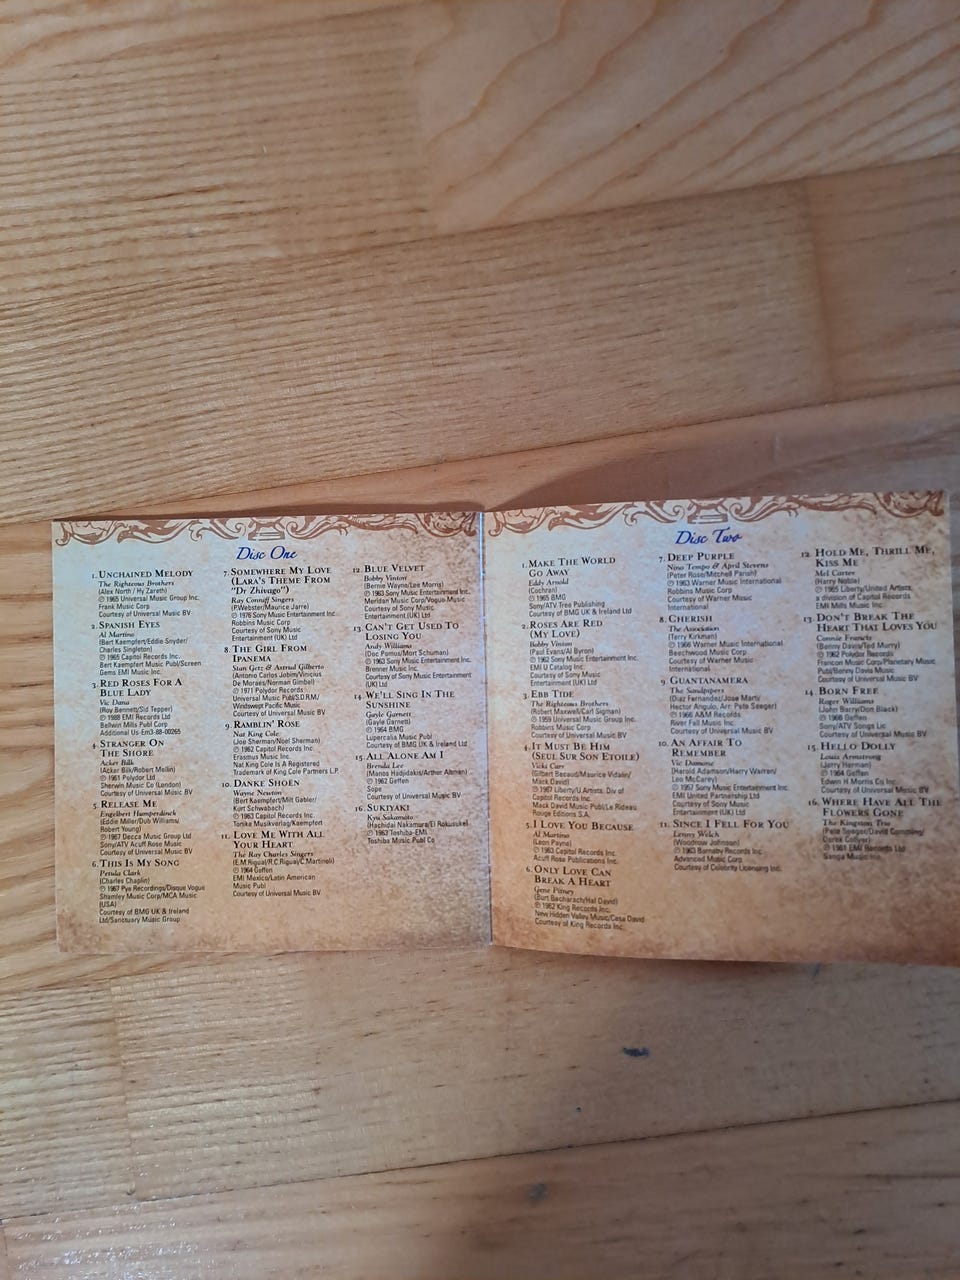 Disc One
1. UNCHAINED MELODY
The Righteous Brothers
(Alex North / Hy Zareth)
℗ 1965 Universal Music Group Inc.
Frank Music Corp
Courtesy of Universal Music BV
2. SPANISH EYES
Al Martino
(Bert Kaempfert/Eddie Snyder/
Charles Singleton)
℗ 1965 Capitol Records Inc.
Bert Kaempfert Music Publ/Screen
Gems EMI Music Inc.
3. RED ROSES FOR A
BLUE LADY
Vic Dana
(Roy Bennett/Sid Tepper)
℗ 1988 EMI Records Ltd
Bellwin Mills Publ Corp
Additional Us-Em3-88-00265
4. STRANGER ON
THE SHORE
Acker Bilk
(Acker Bilk/Robert Mellin)
℗ 1961 Polydor Ltd
Sherwin Music Co (London)
Courtesy of Universal Music BV
5. RELEASE ME
Engelbert Humperdinck
(Eddie Miller/Dub Williams/
Robert Young)
℗ 1967 Decca Music Group Ltd
Sony/ATV Acuff Rose Music
Courtesy of Universal Music BV
6. THIS IS MY SONG
Petula Clark
(Charles Chaplin)
℗ 1967 Pye Recordings/Disque Vogue
Shamley Music Corp/MCA Music
(USA)
Courtesy of BMG UK & Ireland
Ltd/Sanctuary Music Group
7. SOMEWHERE MY LOVE
(LARA'S THEME FROM
"DR ZHIVAGO")
Ray Conniff Singers
(P.Webster/Maurice Jarre)
℗ 1976 Sony Music Entertainment Inc.
Robbins Music Corp
Courtesy of Sony Music
Entertainment (UK) Ltd
8. THE GIRL FROM
IPANEMA
Stan Getz & Astrud Gilberto
(Antonio Carlos Jobim/Vinicius
De Moraes/Norman Gimbel)
℗ 1971 Polydor Records
Universal Music Publ/S.D.R.M./
Windswept Pacific Music
Courtesy of Universal Music BV
9. RAMBLIN' ROSE
Nat King Cole
(Joe Sherman/Noel Sherman)
℗ 1962 Capitol Records Inc.
Erasmus Music Inc.
Nat King Cole Is A Registered
Trademark of King Cole Partners L.P.
10. DANKE SHOEN
Wayne Newton
(Bert Kaempfert/Milt Gabler/
Kurt Schwabach)
℗ 1963 Capitol Records Inc.
Tonika Musikverlag/Kaempfert
11. LOVE ME WITH ALL
YOUR HEART
The Ray Charles Singers
(E.M.Rigual/R.C.Rigual/C.Martinoli)
℗ 1964 Geffen
EMI Mexico/Latin American
Music Publ
Courtesy of Universal Music BV
12. BLUE VELVET
Bobby Vinton
(Bernie Wayne/Lee Morris)
℗ 1963 Sony Music Entertainment Inc.
Meridan Music Corp/Vogue-Music
Courtesy of Sony Music
Entertainment (UK) Ltd
13. CAN'T GET USED TO
LOSING YOU
Andy Williams
(Doc Pomus/Mort Schuman)
℗ 1963 Sony Music Entertainment Inc.
Brenner Music Inc.
Courtesy of Sony Music Entertainment
(UK) Ltd
14. WE'LL SING IN THE
SUNSHINE
Gayle Garnett
(Gayle Garnett)
℗ 1964 BMG
Lupercalia Music Publ
Courtesy of BMG UK & Ireland Ltd
15. ALL ALONE AM I
Brenda Lee
(Manos Hadjidakis/Arther Altman)
℗ 1962 Geffen
Sope
Courtesy of Universal Music BV
16. SUKIYAKI
Kyu Sakamoto
(Hachidai Nakamura/Ei Rokusuke)
℗ 1963 Toshiba-EMI
Toshiba Music Publ Co
Disc Two
1. MAKE THE WORLD
GO AWAY
Eddy Arnold
(Cochran)
℗ 1965 BMG
Sony/ATV Tree Publishing
Courtesy of BMG UK & Ireland Ltd
2. ROSES ARE RED
(MY LOVE)
Bobby Vinton
(Paul Evans/Al Byron)
℗ 1962 Sony Music Entertainment Inc.
EMI U Catalog Inc.
Courtesy of Sony Music
Entertainment (UK) Ltd
3. EBB TIDE
The Righteous Brothers
(Robert Maxwell/Carl Sigman)
℗ 1959 Universal Music Group Inc.
Robbins Music Corp
Courtesy of Universal Music BV
4. IT MUST BE HIM
(SEUL SUR SON ETOILE)
Vicki Carr
(Gilbert Becaud/Maurice Vidalin/
Mack David)
℗ 1967 Liberty/U Artists, Div of
Capitol Records Inc.
Mack David Music Publ/Le Rideau
Rouge Editions S.A.
5. I LOVE YOU BECAUSE
Al Martino
(Leon Payne)
℗ 1963 Capitol Records Inc.
Acuff Rose Publications Inc.
6. ONLY LOVE CAN
BREAK A HEART
Gene Pitney
(Burt Bacharach/Hal David)
℗ 1962 King Records Inc.
New Hidden Valley Music/Casa David
Courtesy of King Records Inc.
7. DEEP PURPLE
Nino Tempo & April Stevens
(Peter Rose/Mitchell Parish)
℗ 1963 Warner Music International
Robbins Music Corp
Courtesy of Warner Music
International
8. CHERISH
The Association
(Terry Kirkman)
℗ 1966 Warner Music International
Beechwood Music Corp
Courtesy of Warner Music
International
9. GUANTANAMERA
The Sandpipers
(Diaz Fernandez/Jose Marti/
Hector Angulo, Arr: Pete Seeger)
℗ 1966 A&M Records
River Fall Music Inc.
Courtesy of Universal Music BV
10. AN AFFAIR TO
REMEMBER
Vic Damone
(Harold Adamson/Harry Warren/
Leo McCarey)
℗ 1957 Sony Music Entertainment Inc
EMI United Partnership Ltd
Courtesy of Sony Music
Entertainment (UK) Ltd
11. SINCE I FELL FOR YOU
Lenny Welch
(Woodrow Johnson)
℗ 1963 Barnaby Records Inc.
Advanced Music Corp
Courtesy of Celebrity Licensing Inc.
12. HOLD ME, THRILL ME,
KISS ME
Mel Carter
(Harry Noble)
℗ 1965 Liberty/United Artists,
a division of Capitol Records
EMI Mills Music Inc.
13. DON'T BREAK THE
HEART THAT LOVES YOU
Connie Francis
(Benny Davis/Ted Murry)
℗ 1962 Polydor Records
Francon Music Corp/Planetary Music
Publ/Benny Davis Music
Courtesy of Universal Music BV
14. BORN FREE
Roger Williams
(John Barry/Don Black)
℗ 1966 Geffen
Sony/ATV Songs Llc
Courtesy of Universal Music BV
15. HELLO DOLLY
Louis Armstrong
(Jerry Herman)
℗ 1964 Geffen
Edwin H Morris Co Inc.
Courtesy of Universal Music BV
16. WHERE HAVE ALL THE
FLOWERS GONE
The Kingston Trio
(Pete Seeger/David Cumming/
Derek Collyer)
℗ 1961 EMI Records Ltd
Sanga Music Inc.